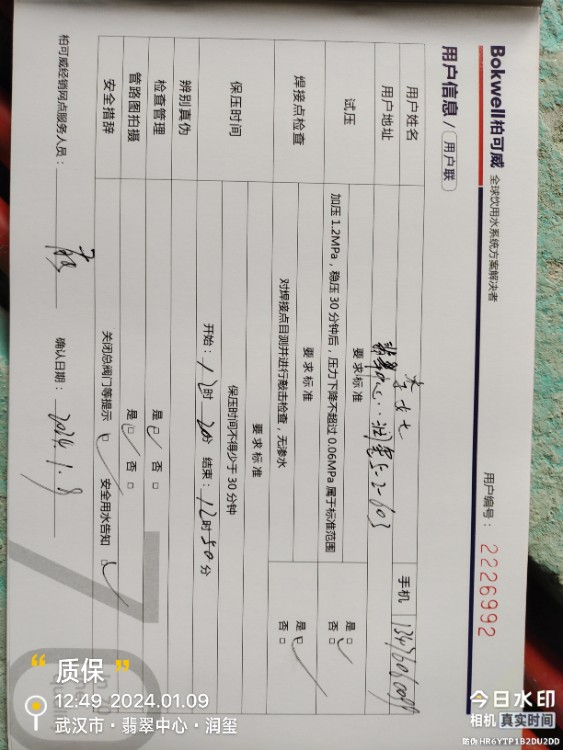 Bokwell柏可威 全球饮用水系统方案解决者
用户信息/用户联
用户编号：2226992
用户姓名 李女士
手机
用户地址 翡翠中心·润玺5-2-603
试压
要求标准
加压1.2MPa，稳压30分钟后，压力下降不超过0.06MPa属于标准范围
是□ 否□
焊接点检查
要求标准
对焊接点目测并进行敲击检查，无渗水
是□ 否□
保压时间
要求标准
保压时间不得少于30分钟
开始：12时20分 结束：12时50分
辨别真伪
检查管理 是□ 否□
管路图拍摄 是□ 否□
安全措辞 关闭总阀门等提示□ 安全用水告知□
柏可威经销网点服务人员：
确认日期：2024.1.9
“质保”
12:49 2024.01.09
武汉市·翡翠中心·润玺
今日水印
相机 真实时间
防伪 HR6YTP1B2DU2DD